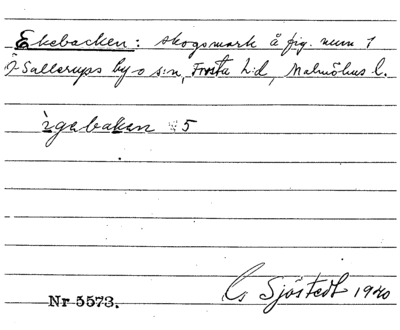 Ekebacken: skogsmark å fig. num 1
i Sallerups by o s:n, Frosta h:d, Malmöhus l.
ègabakan 5
Nr 5573.
G Sjöstedt 1940